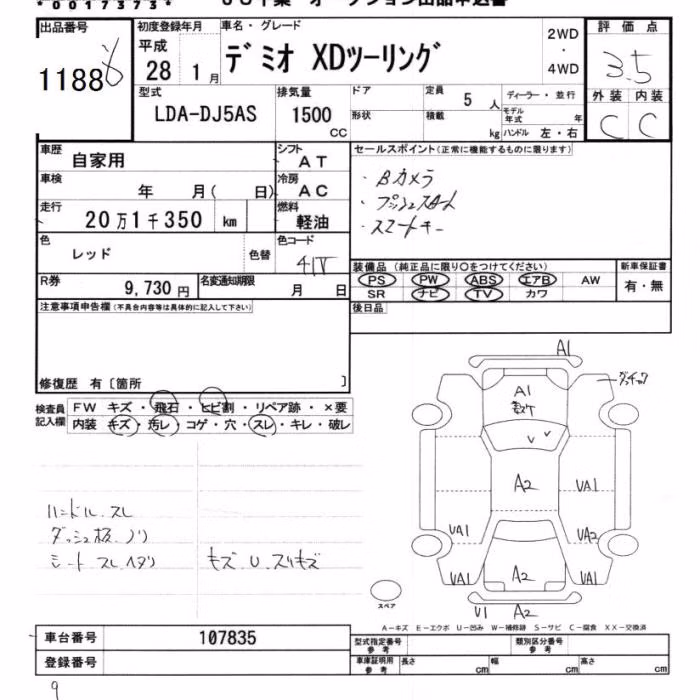 *00173753*
出品番号
1188
初度登録年月
平成
28 1月
車名・グレード
デミオ XDツーリング
2WD
・
4WD
評価点
3.5
型式
LDA-DJ5AS
排気量
1500
CC
ドア
形状
定員 5 人
積載 kg
ディーラー・並行
モデル年式 年
ハンドル 左・右
外装 内装
C C
車歴
自家用
シフト
AT
車検
年 月( 日)
冷房
AC
走行
20万1千350 km
燃料
軽油
色
レッド
色替
色コード
41V
R券
9,730円
名変通知期限
月 日
セールスポイント(正常に機能するものに限ります)
・Bカメラ
・プッシュスタート
・スマートキー
装備品 (純正品に限り〇をつけてください)
PS PW ABS エアB AW
SR ナビ TV カワ
新車保証書
有・無
後日品
注意事項申告欄(不具合内容等は具体的に記入して下さい)
修復歴 有〔箇所 〕
検査員
記入欄
FW キズ・飛石・ヒビ割・リペア跡・×要
内装 キズ・汚レ・コゲ・穴・スレ・キレ・破レ
ハンドル スレ
ダッシュ板 ノリ
シート スレ ヘタリ
キズ U スリキズ
A1
A1
A2
VA1
VA1
VA2
VA1
A2
VA1
V1 A2
スペア
A-キズ E-エクボ U-凹み W-補修跡 S-サビ C-腐食 XX-交換済
車台番号
107835
登録番号
型式指定番号
参考
類別区分番号
参考
車庫証明用
参考
長さ cm
幅 cm
高さ cm
9